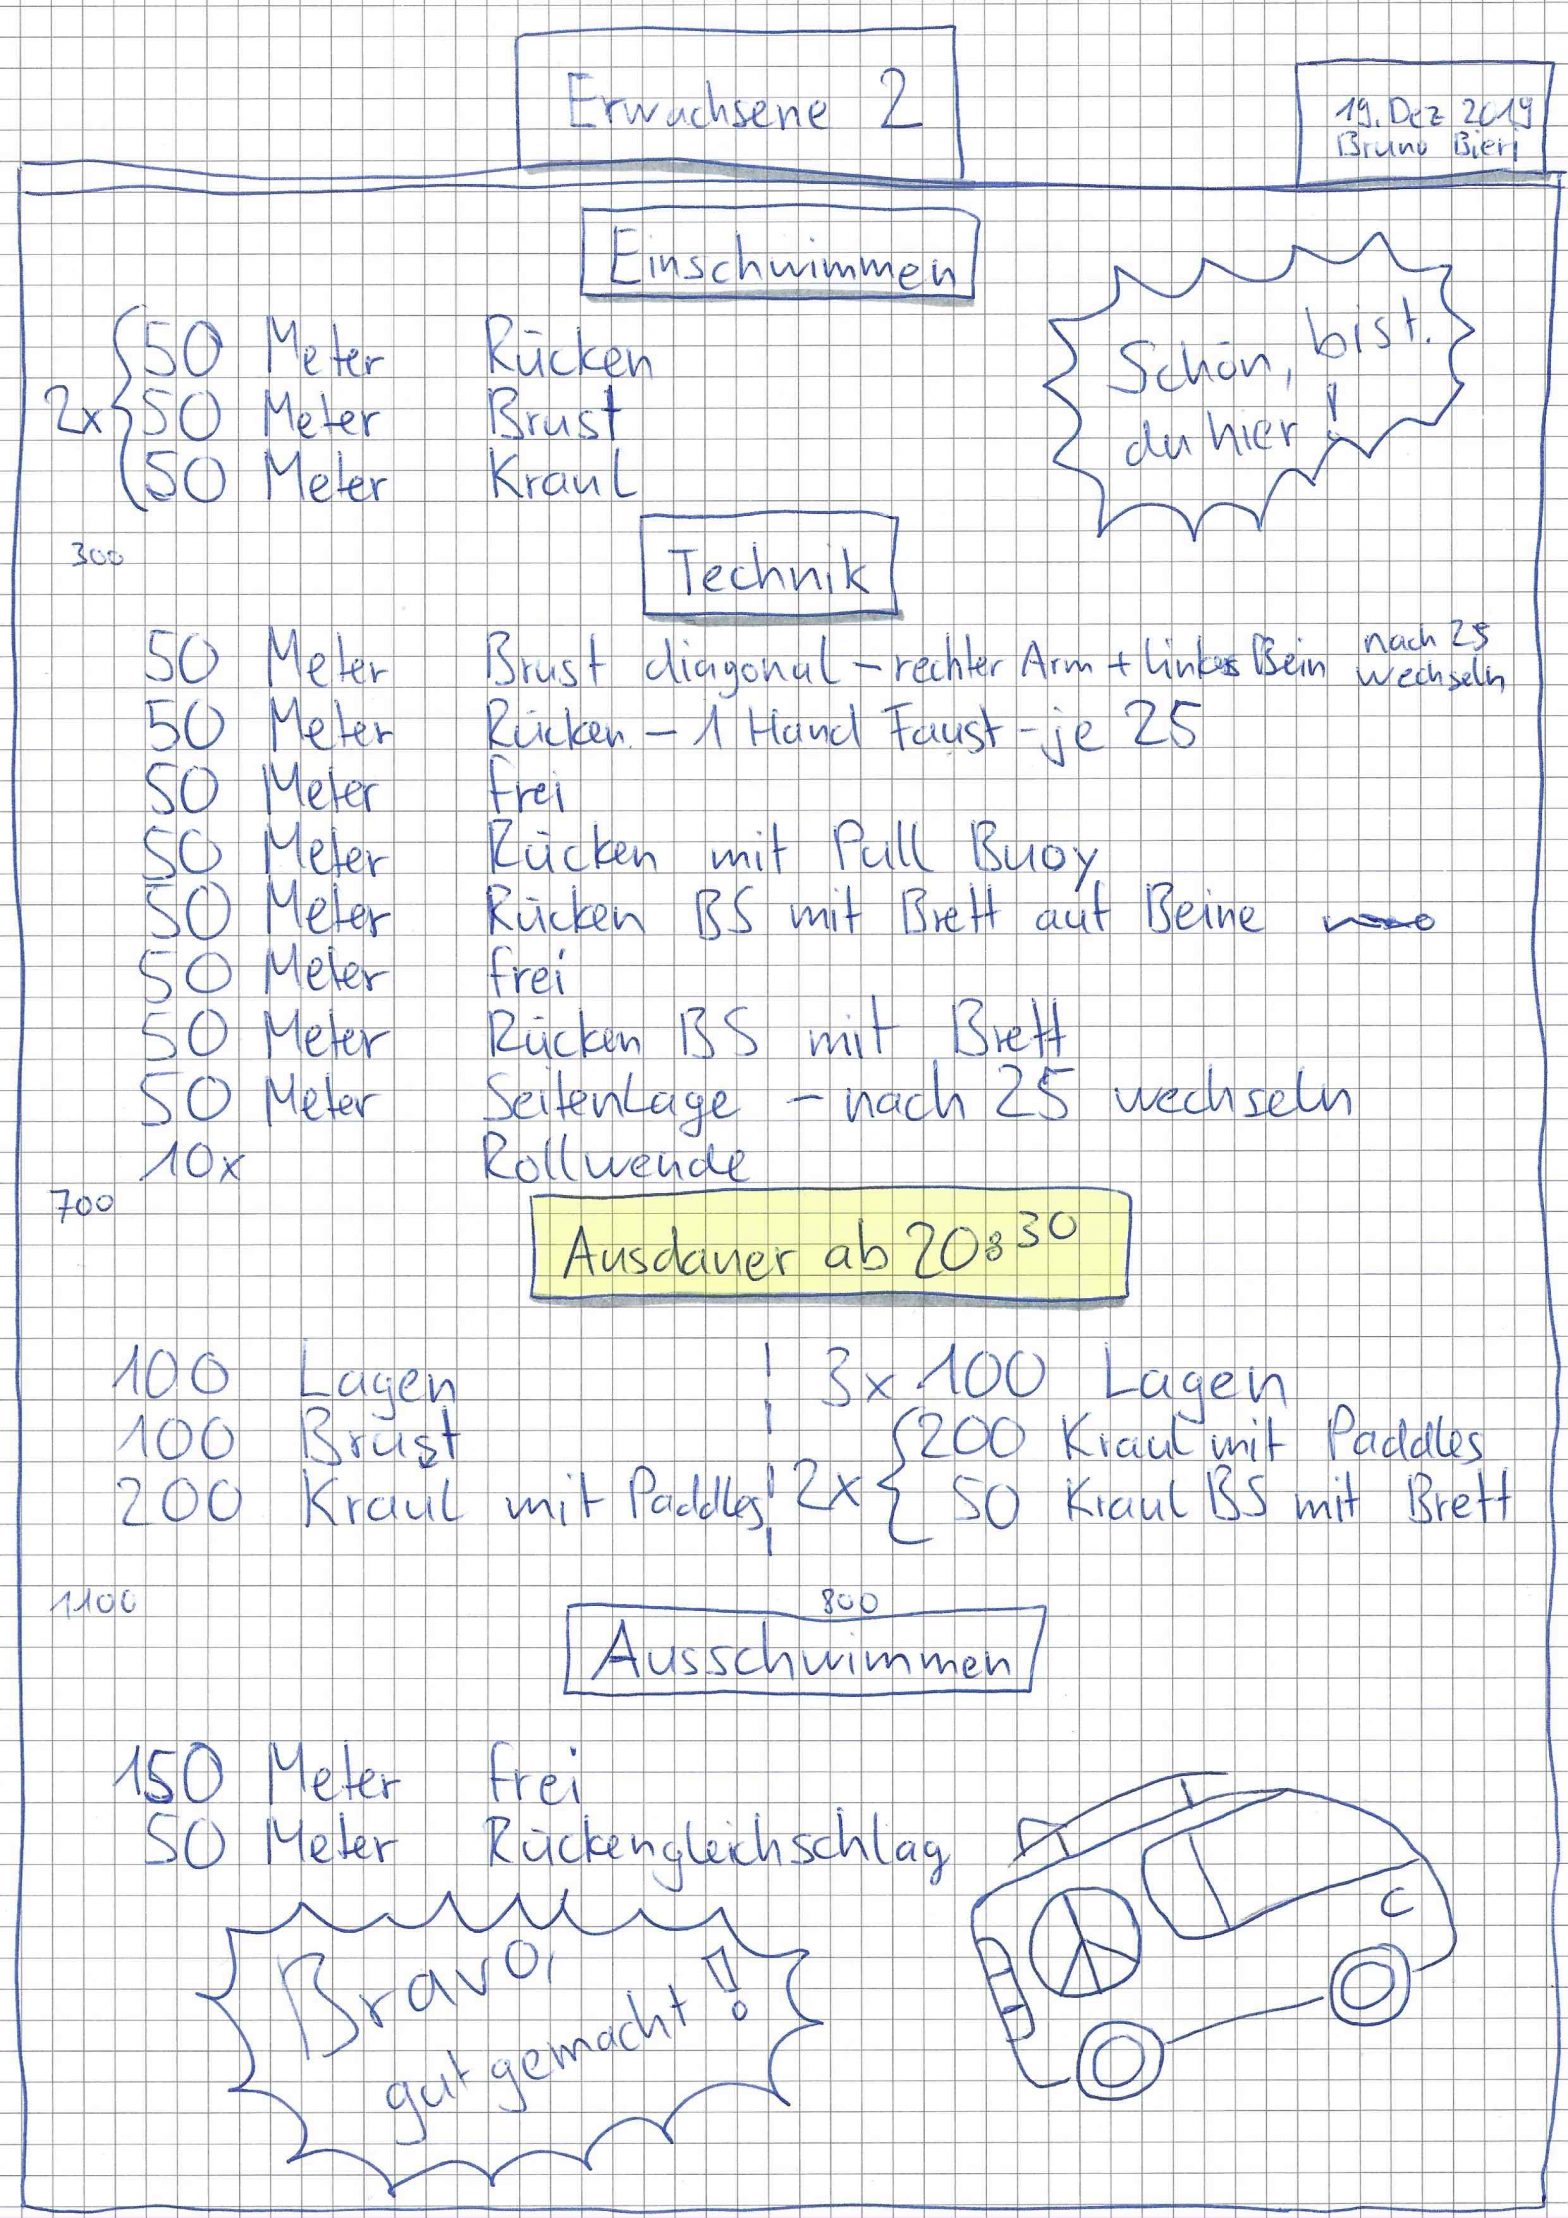 Erwachsene 2
19. Dez 2019
Bruno Bieri
Einschwimmen
Schön, bist.
du hier!
2x
50 Meter Rücken
50 Meter Brust
50 Meter Kraul
300
Technik
50 Meter Brust diagonal – rechter Arm + linkes Bein nach 25 wechseln
50 Meter Rücken – 1 Hand Faust – je 25
50 Meter frei
50 Meter Rücken mit Pull Buoy
50 Meter Rücken BS mit Brett auf Beine
50 Meter frei
50 Meter Rücken BS mit Brett
50 Meter Seitenlage – nach 25 wechseln
10x Rollwende
700
Ausdauer ab 20:30
100 Lagen
100 Brust
200 Kraul mit Paddles
3x 100 Lagen
2x
200 Kraul mit Paddles
50 Kraul BS mit Brett
1100
800
Ausschwimmen
150 Meter frei
50 Meter Rückengleichschlag
Bravo,
gut gemacht!